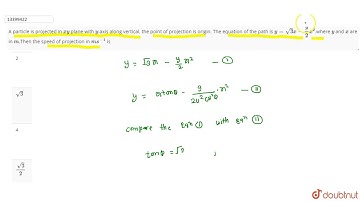 13199422
A particle is projected in xy plane with y-axis along vertical, the point of projection is origin. The equation of the path is y = √3x - g/2 x² where y and x are in m. Then the speed of projection in ms⁻¹ is
2
√3
4
√3/2
y = √3 x - g/2 x² - I
y = x tanθ - g/2u²cos²θ · x² - II
compare the Eqⁿ I with Eqⁿ II
tanθ = √3 ,
doubtnut